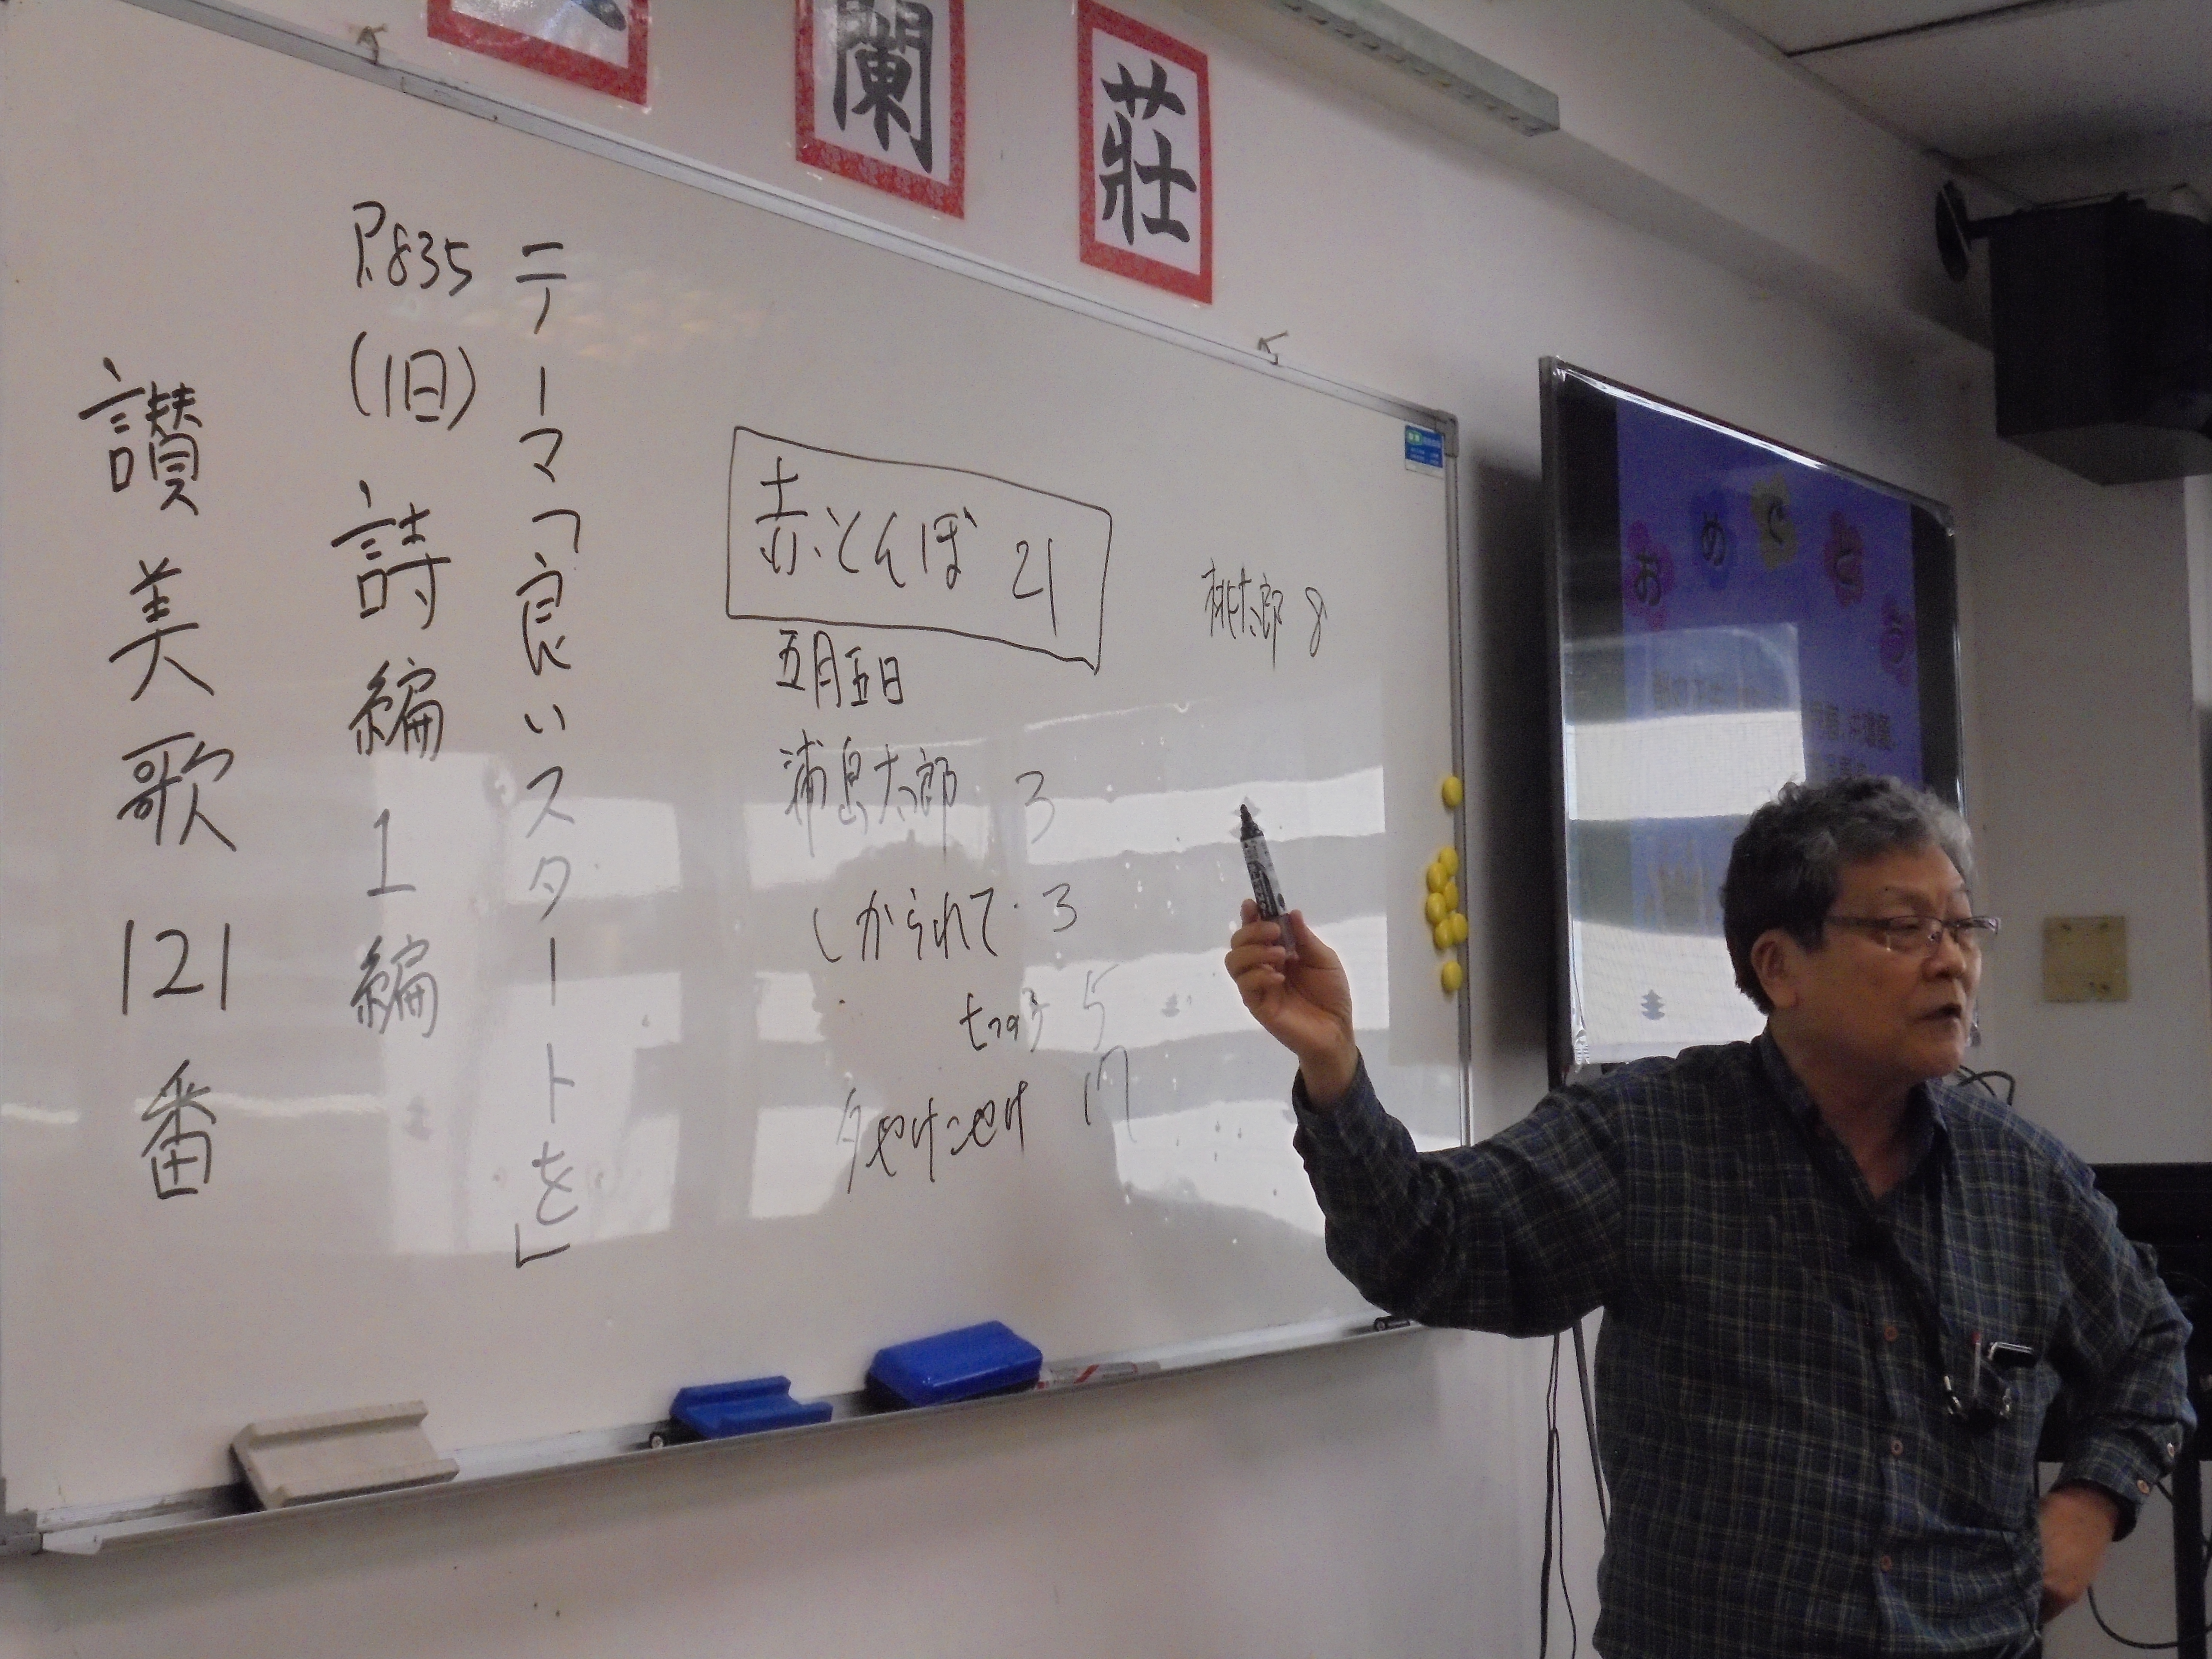 蘭
莊
テーマ「良いスタートを」
P.835
(旧)詩編1編
讃美歌121番
赤とんぼ 21
五月五日
浦島太郎 3
しかられて 3
七つの子 5
夕やけこやけ 17
桃太郎 8
おめでとう